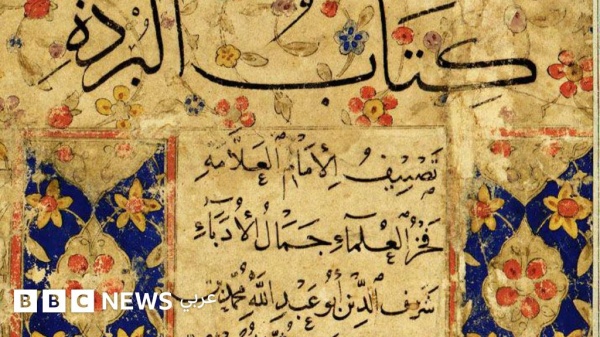 كِتَابُ الْبُرْدَةِ
تَصْنِيفُ الْإِمَامِ الْعَلَّامَةِ
فَخْرُ الْعُلَمَاءِ جَمَالُ الْأُدَبَاءِ
شَرَفُ الدِّينِ أَبُو عَبْدِ اللَّهِ مُحَمَّدِ بْنِ
BBC NEWS عربي